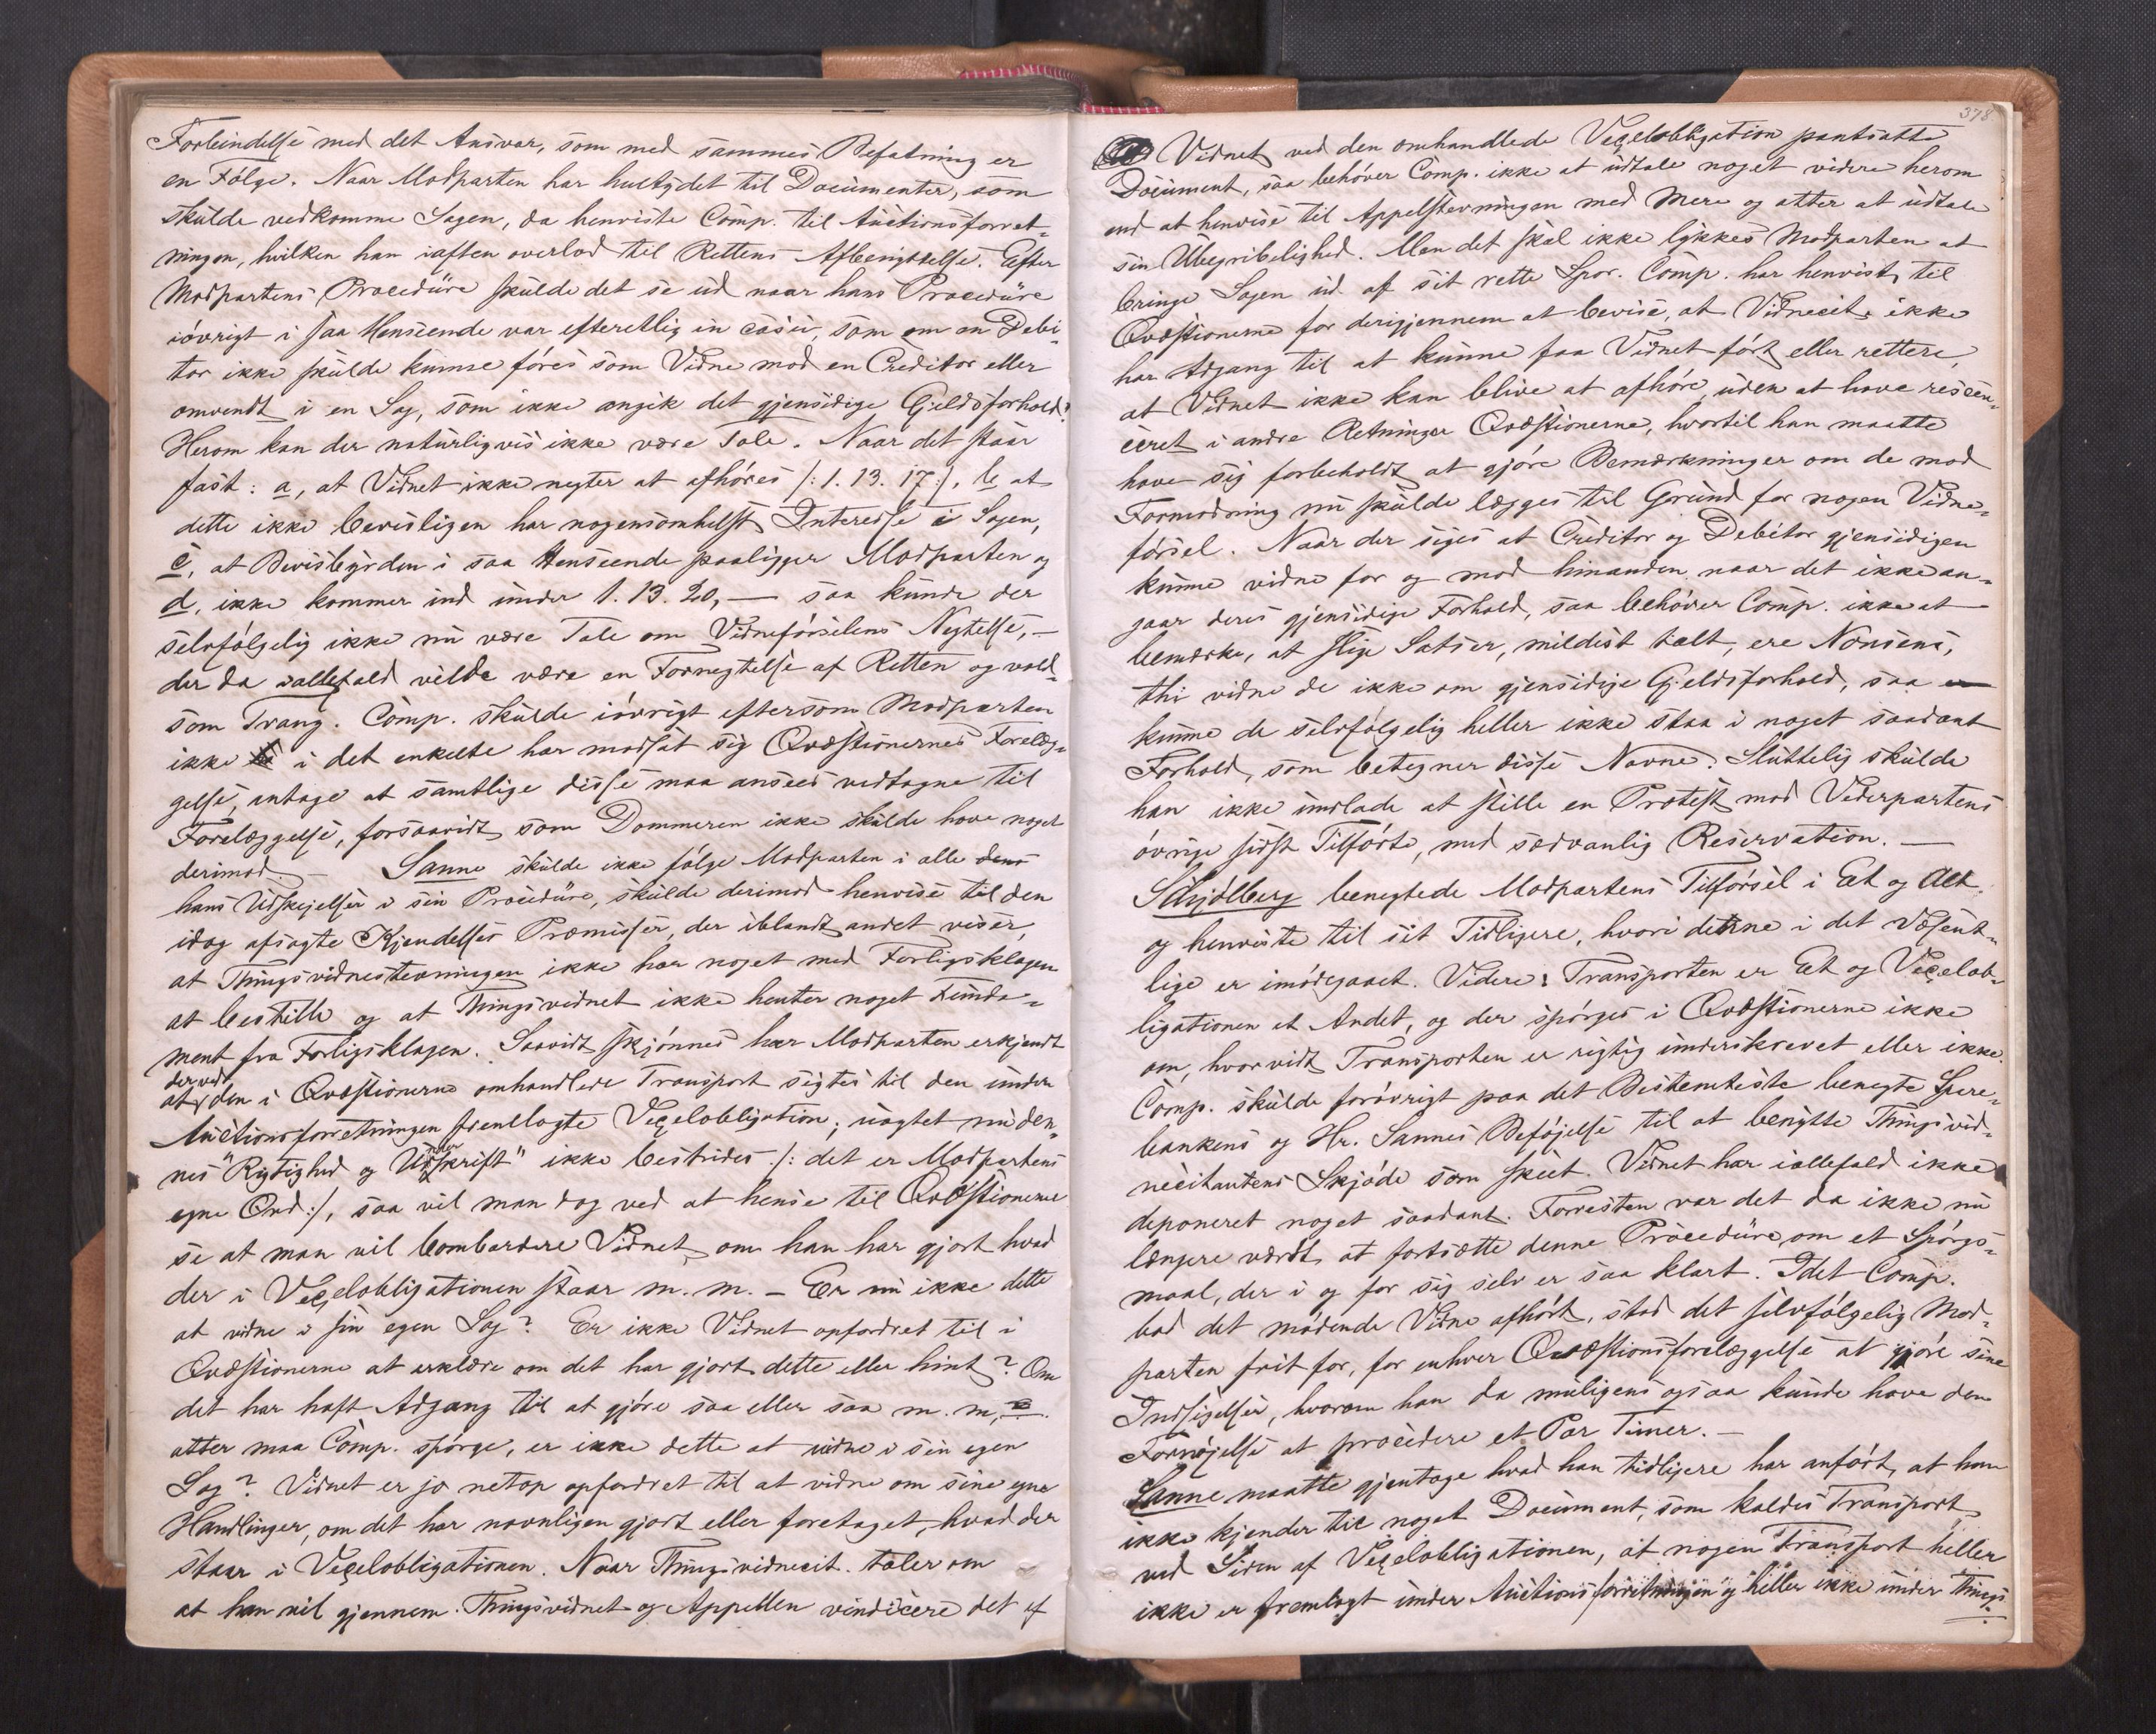 Forbindelse med det Ansvar, som med sammes Befatning er
en Fölge. Naar Modparten har hentydet til Documenter, som
skulde vedkomme Sagen, da henviste Comp. til Auctionsforret-
ningen, hvilken han iaften overlod til Rettens Afbenyttelse. Efter
Modpartens Procedure skulde det se ud naar hans Procedure
iövrigt i saa Henseende var efterretlig in casu, som om en Debi-
tor ikke skulde kunne föres som Vidne mod en Creditor eller
omvendt i en Sag, som ikke angik det gjensidige Gjeldsforhold?
Herom kan der naturligvis ikke være Tale. Naar det staar
fast: a, at Vidnet ikke negter at afhöres /: 1. 13. 17 :/, b at
dette ikke bevisligen har nogensomhelst Interesse i Sagen,
c, at Bevisbyrden i saa Henseende paaligger Modparten og
d, ikke kommer ind under 1. 13. 20, — saa kunde der
selvfölgelig ikke nu være Tale om Vidneförselens Negtelse, —
der da iallefald vilde være en Fornegtelse af Retten og vold-
som Trang. Comp. skulde iövrigt eftersom Modparten
ikke i det enkelte har modsat sig Qvæstionernes Forelæg-
gelse, antage at samtlige disse maa ansees vedtagne til
Forelæggelse, forsaavidt som Dommeren ikke skulde have noget
derimod. — Sanne skulde ikke fölge Modparten i alle dens
hans Udskejelser i sin Procedure, skulde derimod henvise til den
idag afsagte Kjendelses Præmisser, der iblandt andet viser,
at Thingsvidnestevningen ikke har noget med Forligsklagen
at bestille og at Thingsvidnet ikke henter noget Funda-
ment fra Forligsklagen. Saavidt skjönnes har Modparten erkjendt
at der ved den i Qvæstionerne omhandlede Transport sigtes til den under
Auctionsforretningen fremlagte Vexelobligation; uagtet nu den-
nes "Rigtighed og Underskrift" ikke bestrides /: det er Modpartens
egne Ord :/, saa vil man dog ved at hense til Qvæstionerne
se at man vil bombardere Vidnet, om han har gjort hvad
der i Vexelobligationen staar m. m. — Er nu ikke dette
at vidne i sin egen Sag? Er ikke Vidnet opfordret til i
Qvæstionerne at erklære om det har gjort dette eller hint? Om
det har haft Adgang til at gjöre saa eller saa m. m.
atter maa Comp. spörge, er ikke dette at vidne i sin egen
Sag? Vidnet er jo netop opfordret til at vidne om sine egne
Handlinger, om det har navnligen gjort eller foretaget, hvad der
staar i Vexelobligationen. Naar Thingsvidnecit. taler om
at han vil gjennem Thingsvidnet og Appellen vindicere det af
378
Vidnet ved den omhandlede Vexelobligation pantsatte
Document, saa behöver Comp. ikke at udtale noget videre herom
end at henvise til Appelstevningen med Mere og atter at udtale
sin Ubegribelighed. Men det skal ikke lykkes Modparten at
bringe Sagen ud af sit rette Spor. Comp. har henvist til
Qvæstionerne for derigjennem at bevise, at Vidnecit. ikke
har Adgang til at kunne faa Vidnet fört eller rettere,
at Vidnet ikke kan blive at afhöre uden at have rescen-
ceret i andre Retninger Qvæstionerne, hvortil han maatte
have sig forbeholdt at gjöre Bemærkninger om de mod
Formodning nu skulde lægges til Grund for nogen Vidne-
försel. Naar der siges at Creditor og Debitor gjensidigen
kunne vidne for og mod hinanden naar det ikke an-
gaar deres gjensidige Forhold, saa behöver Comp. ikke at
bemærke, at slige Satser, mildest talt, ere Nonsens,
thi vidne de ikke om gjensidige Gjeldsforhold, saa
kunne de selvfölgelig heller ikke staa i noget saadant
Forhold, som betegner disse Navne. Sluttelig skulde
han ikke undlade at stille en Protest mod Vederpartens
övrige sidst Tilförte, med sædvanlig Reservation. —
Schjölberg benegtede Modpartens Tilförsel i Et og Alt
og henviste til sit Tidligere, hvori denne i det Væsent-
lige er imödegaaet. Videre: Transporten er Et og Vexelob-
ligationen et Andet, og der spörges i Qvæstionerne ikke
om, hvorvidt Transporten er rigtig underskrevet eller ikke.
Comp. skulde forövrigt paa det Bestemteste benegte Spare-
bankens og Hr. Sannes Beföjelse til at benytte Thingsvid-
necitantens Skjöde som skeet. Vidnet har iallefald ikke
deponeret noget saadant. Forresten var det da ikke nu
længere værdt at fortsætte denne Procedure om et Spörgs-
maal, der i og for sig selv er saa klart. Idet Comp.
bad det mödende Vidne afhört, stod det selvfölgelig Mod-
parten frit for, for enhver Qvæstionsforelæggelse at gjöre sine
Indsigelser, hvorom han da muligens ogsaa kunde have den
Fornöjelse at procedere et Par Timer. —
Sanne maatte gjentage hvad han tidligere har anfört, at han
ikke kjender til noget Document, som kaldes "Transport"
ved Siden af Vexelobligationen, at nogen Transport heller
ikke er fremlagt under Auctionsforretningen og heller ikke under Things-